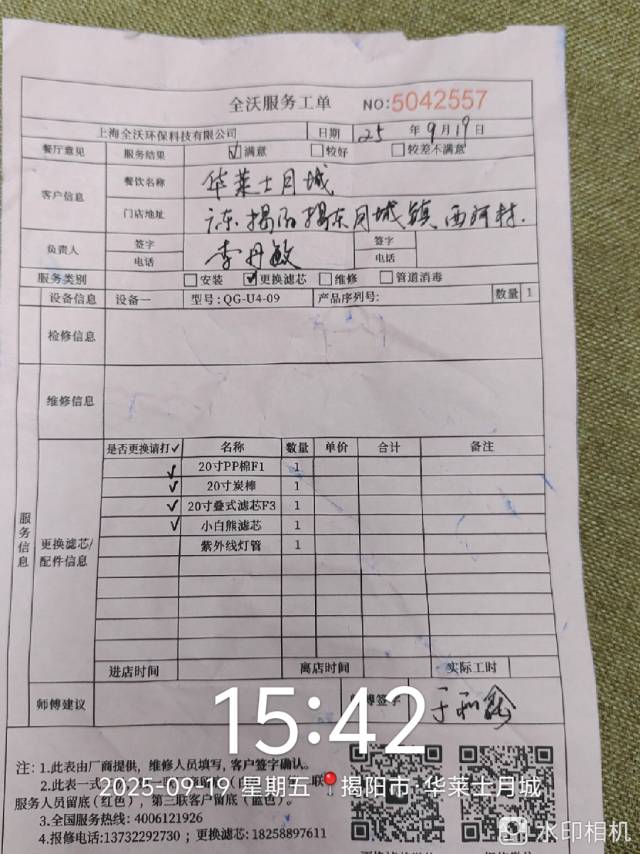 全沃服务工单 NO:5042557
上海全沃环保科技有限公司 日期 25 年 9 月 19 日
餐厅意见 服务结果 ☑满意 □较好 □较差不满意
客户信息 餐饮名称 华莱士月城
门店地址 广东揭阳揭东月城镇西河村.
负责人 签字 李丹敏 签字
电话 电话
服务类别 □安装 ☑更换滤芯 □维修 □管道消毒
设备信息 设备一 型号: QG-U4-09 产品序列号: 数量 1
检修信息
维修信息
服务信息
更换滤芯/配件信息
是否更换请打✓ 名称 数量 单价 合计 备注
✓ 20寸PP棉F1 1
✓ 20寸炭棒 1
✓ 20寸叠式滤芯F3 1
✓ 小白熊滤芯 1
紫外线灯管 1
进店时间 离店时间 实际工时
师傅建议 傅签字
15:42
2025-09-19 星期五 揭阳市·华莱士月城
注: 1.此表由厂商提供, 维修人员填写, 客户签字确认。
2.此表一式
服务人员留底(红色), 第三联客户留底(蓝色)。
3.全国服务热线: 4006121926
4.报修电话:13732292730; 更换滤芯: 18258897611
水印相机